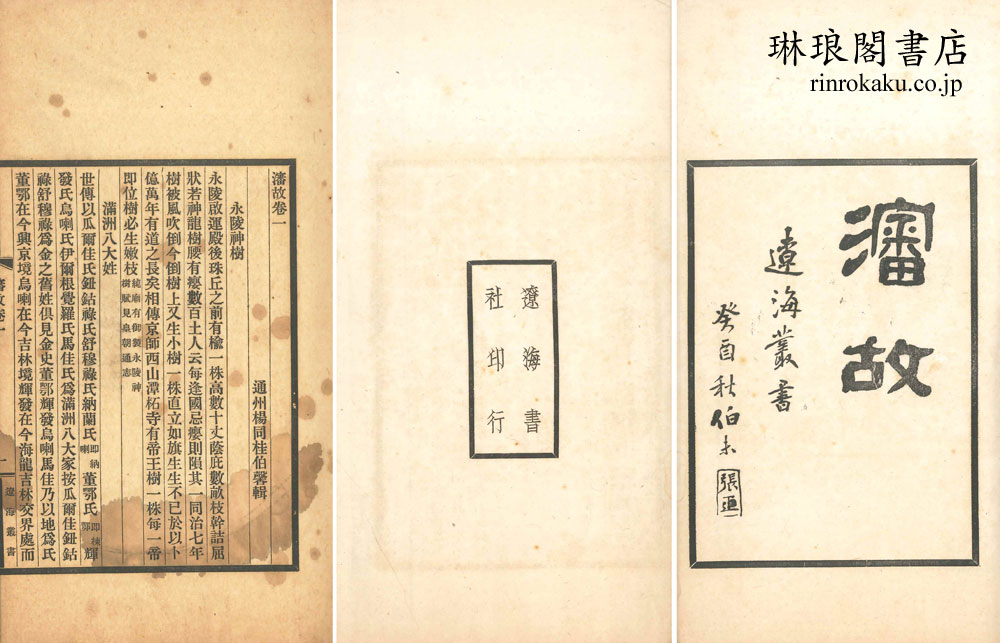 琳琅閣書店
rinrokaku.co.jp
瀋故
遼海叢書
癸酉秋伯未
遼海書
社印行
瀋故卷一
通州楊同桂伯馨輯
永陵神樹
永陵啟運殿後珠丘之前有楡一株高數十丈蔭庇數畝枝幹詰屈
狀若神龍樹腰有癭數百土人云每逢國忌癭則隕其一同治七年
樹被風吹倒今倒樹上又生小樹一株直立如旗生生不已於以卜
億萬年有道之長矣相傳京師西山潭柘寺有帝王樹一株每一帝
即位樹必生嫩枝純廟有御製永陵神樹賦見皇朝通志
滿洲八大姓
世傳以瓜爾佳氏鈕鈷祿氏舒穆祿氏納蘭氏即納喇董鄂氏即棟鄂輝
發氏烏喇氏伊爾根覺羅氏馬佳氏爲滿洲八大家按瓜爾佳鈕鈷
祿舒穆祿爲金之舊姓俱見金史董鄂輝發烏喇馬佳乃以地爲氏
董鄂在今興京境烏喇在今吉林境輝發在今海龍吉林交界處而
瀋故卷一
一
遼海叢書